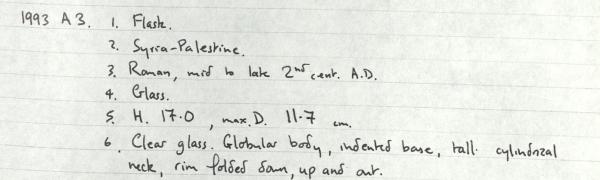 1993 A3. 1. Flask.
2. Syria-Palestine.
3. Roman, mid to late 2nd cent. A.D.
4. Glass.
5. H. 17.0, max. D. 11.7 cm.
6. Clear glass. Globular body, indented base, tall cylindrical
neck, rim folded down, up and out.